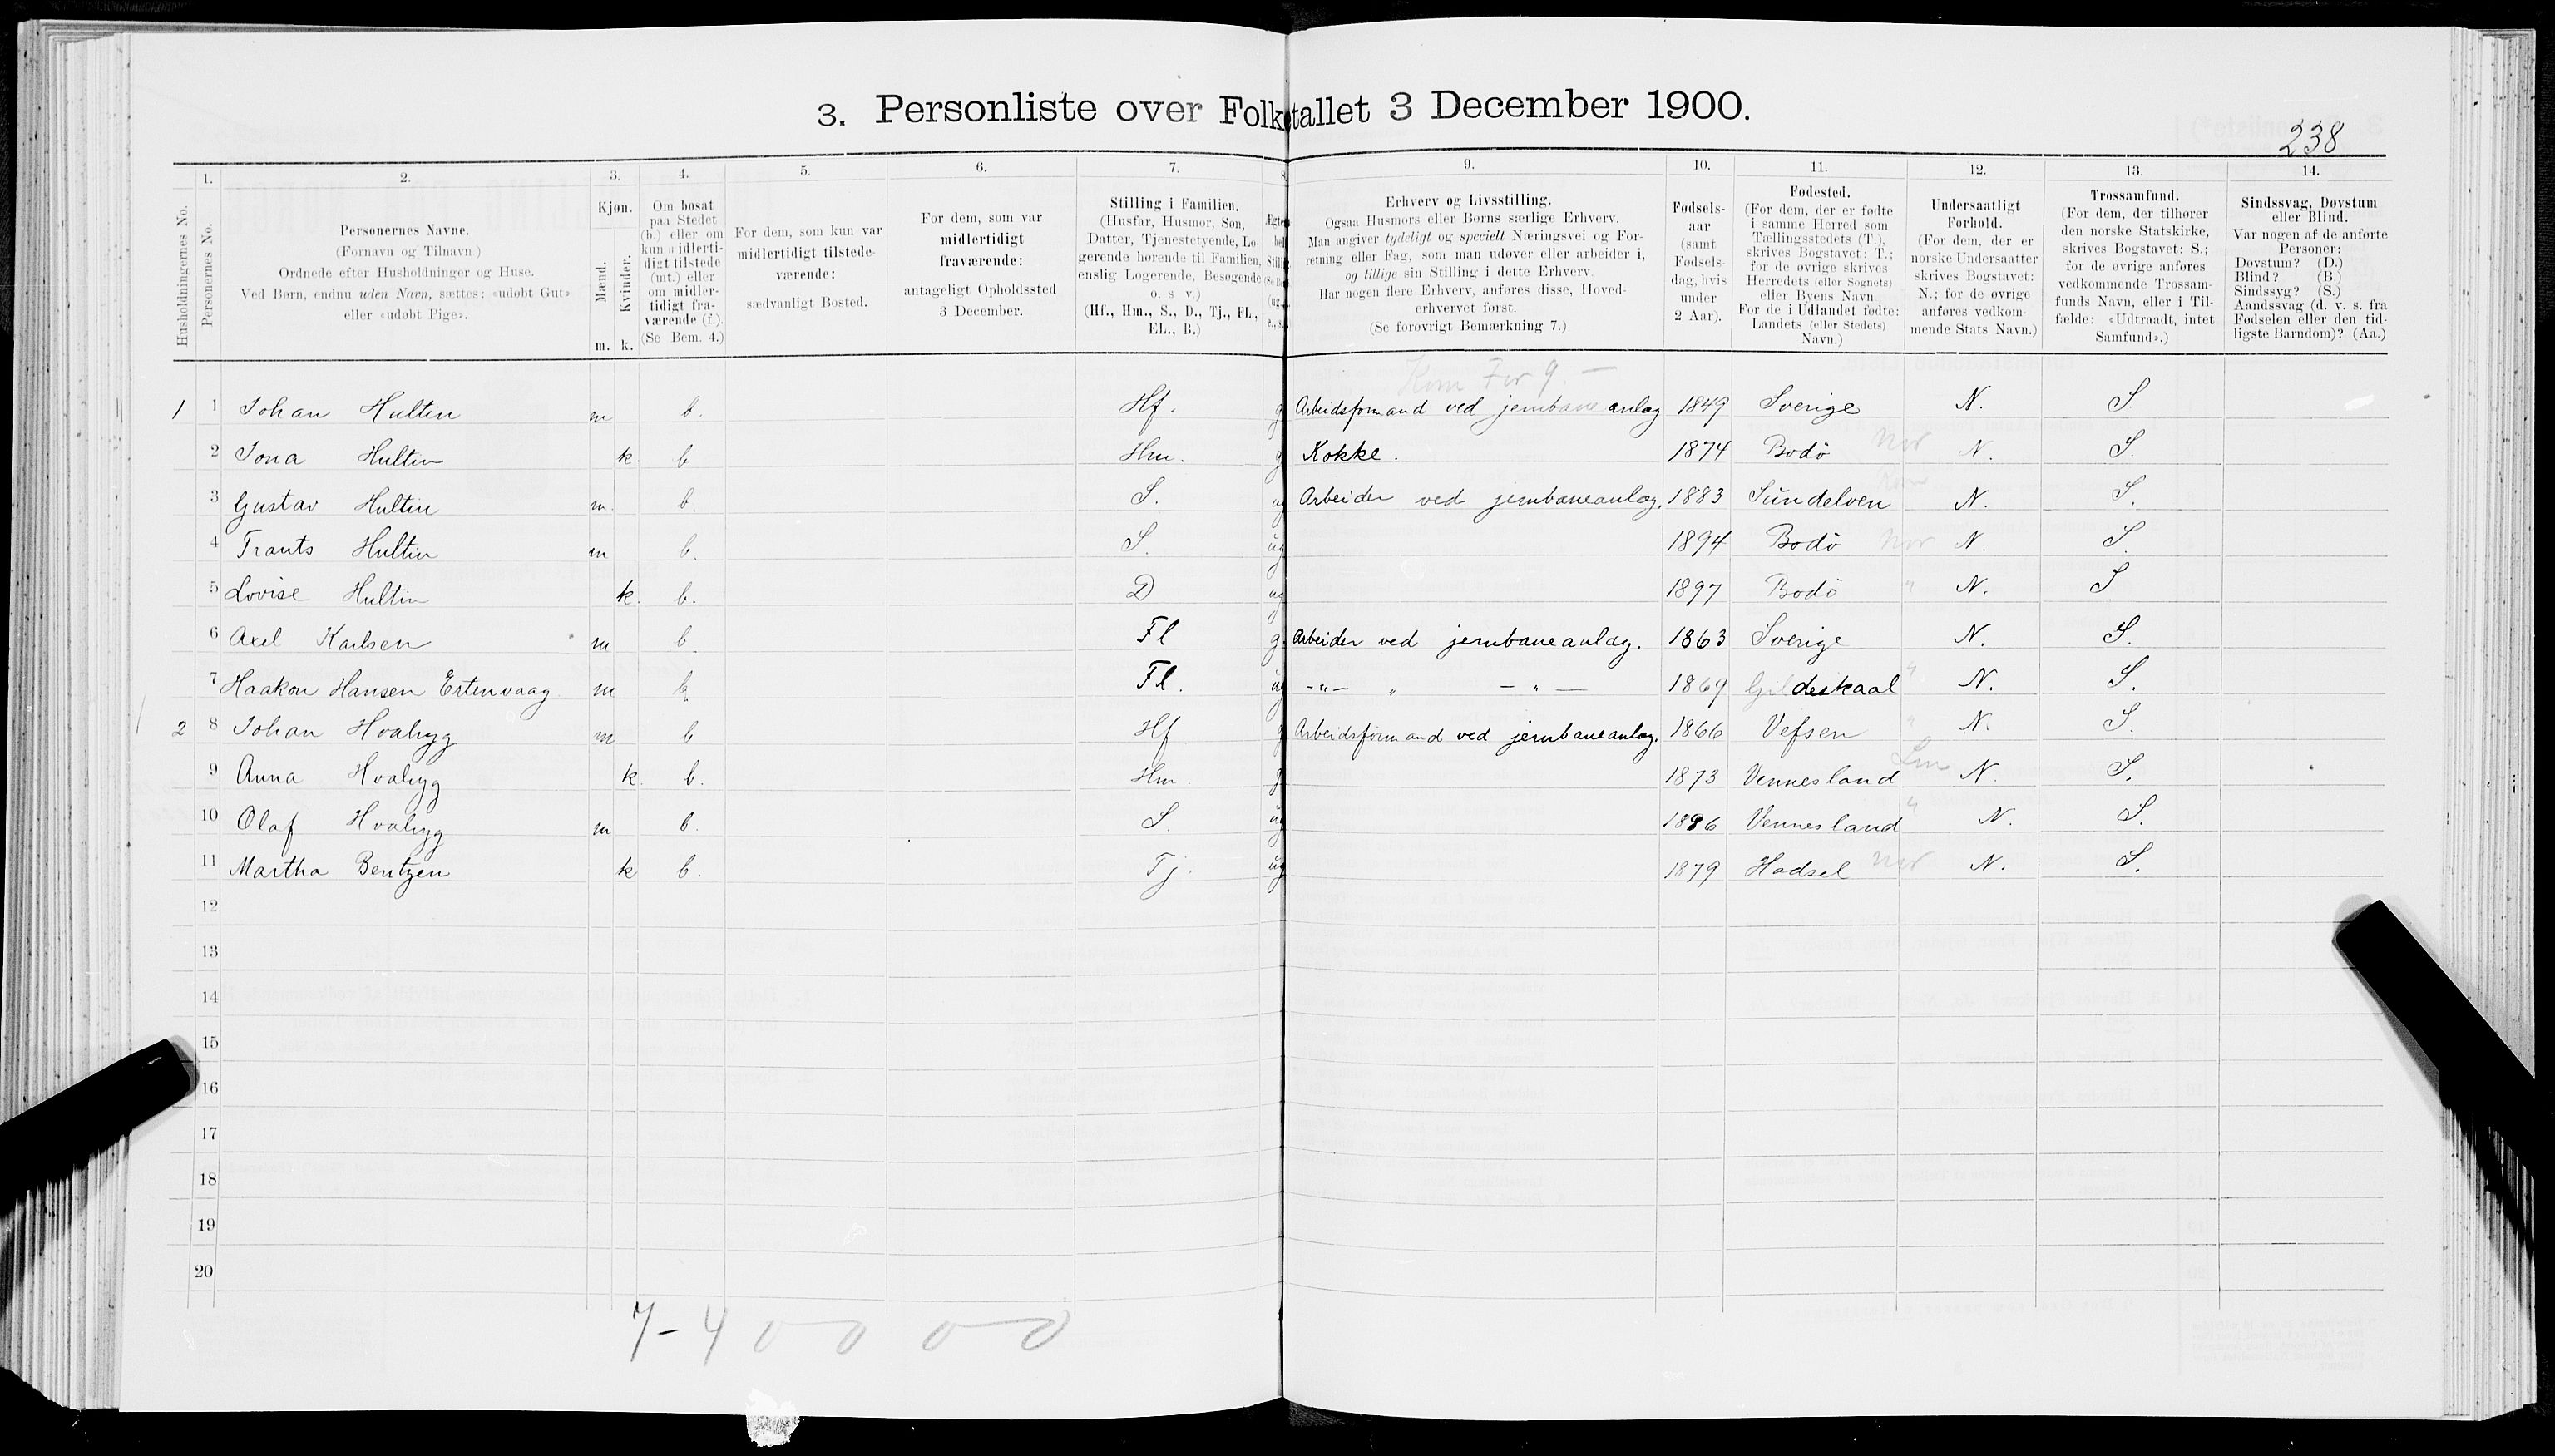 3. Personliste over Folketallet 3 December 1900.
238
Husholdningernes No.
1.
Personernes No.
2.
Personernes Navne.
(Fornavn og Tilnavn)
Ordnede efter Husholdninger og Huse.
Ved Børn, endnu uden Navn, sættes: «udøbt Gut»
eller «udøbt Pige».
3.
Kjøn.
Mænd.
Kvinder.
m. k.
4.
Om bosat
paa Stedet
(b.) eller om
kun midlerti-
digt tilstede
(mt.) eller
om midler-
tidigt fra-
værende (f.).
(Se Bem. 4.)
5.
For dem, som kun var
midlertidigt tilstede-
værende:
sædvanligt Bosted.
6.
For dem, som var
midlertidigt
fraværende:
antageligt Opholdssted
3 December.
7.
Stilling i Familien.
(Husfar, Husmor, Søn,
Datter, Tjenestetyende, Lo-
gerende hørende til Familien,
enslig Logerende, Besøgende
o. s v.)
(Hf., Hm., S., D., Tj., FL.,
EL., B.)
9.
Erhverv og Livsstilling.
Ogsaa Husmors eller Børns særlige Erhverv.
Man angiver tydeligt og specielt Næringsvei og For-
retning eller Fag, som man udøver eller arbeider i,
og tillige sin Stilling i dette Erhverv.
Har nogen flere Erhverv, anføres disse, Hoved-
erhvervet først.
(Se forøvrigt Bemærkning 7.)
10.
Fødsels-
aar
(samt
Fødsels-
dag, hvis
under
2 Aar).
11.
Fødested.
(For dem, der er fødte
i samme Herred som
Tællingsstedets (T.),
skrives Bogstavet: T.;
for de øvrige skrives
Herredets (eller Sognets)
eller Byens Navn
For de i Udlandet fødte:
Landets (eller Stedets)
Navn.)
12.
Undersaatligt
Forhold.
(For dem, der er
norske Undersaatter
skrives Bogstavet:
N.; for de øvrige
anføres vedkom-
mende Stats Navn.)
13.
Trossamfund.
(For dem, der tilhører
den norske Statskirke,
skrives Bogstavet: S.;
for de øvrige anføres
vedkommende Trossam-
funds Navn, eller i Til-
fælde: «Udtraadt, intet
Samfund».)
14.
Sindssvag, Døvstum
eller Blind.
Var nogen af de anførte
Personer:
Døvstum? (D.)
Blind? (B.)
Sindssyg? (S.)
Aandssvag (d. v. s. fra
Fødselen eller den tid-
ligste Barndom)? (Aa.)
1 1 Johan Hultin m b. Hf. g Arbeidsformand ved jernbaneanlæg 1849 Sverige N. S.
2 Jona Hultin k. b Hm. g Kokke. 1874 Bodö Nor N. S.
3 Gustav Hultin m b. S. ug Arbeider ved jernbaneanlæg. 1883 Sündelven N. S.
4 Frants Hultin m b. S. ug 1894 Bodö Nor N. S.
5 Lovise Hultin k. b. D ug 1897 Bodö " N. S
6 Axel Karlsen m b. Fl g. Arbeider ved jernbaneanlæg. 1863 Sverige N. S.
7 Haakon Hansen Ertenvaag m b. Fl. ug -"- " -"- 1869 Gildeskaal " N. S.
2 8 Johan Hvalryg m b Hf g Arbeidsformand ved jernbaneanlæg. 1866 Vefsen " N. S.
9 Anna Hvalryg k. b. Hm. g 1873 Vennesland N. S.
10 Olaf Hvalryg m b. S. ug 1896 Vennesland " N. S.
11 Martha Bentzen k b. Tj. ug 1879 Hadsel Nor N. S.
12
13
14
15
16
17
18
19
20
7-4 0 0 0 0